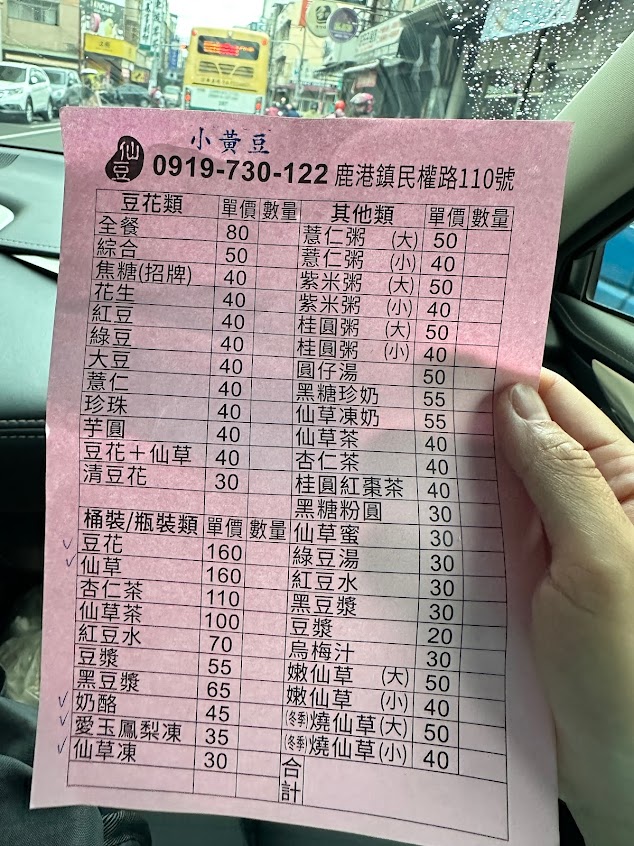 小黃豆
仙豆 0919-730-122 鹿港鎮民權路110號
豆花類 單價 數量
全餐 80
綜合 50
焦糖(招牌) 40
花生 40
紅豆 40
綠豆 40
大豆 40
薏仁 40
珍珠 40
芋圓 40
豆花＋仙草 40
清豆花 30
桶裝/瓶裝類 單價 數量
豆花 160
仙草 160
杏仁茶 110
仙草茶 100
紅豆水 70
豆漿 55
黑豆漿 65
奶酪 45
愛玉鳳梨凍 35
仙草凍 30
其他類 單價 數量
薏仁粥 (大) 50
薏仁粥 (小) 40
紫米粥 (大) 50
紫米粥 (小) 40
桂圓粥 (大) 50
桂圓粥 (小) 40
圓仔湯 50
黑糖珍奶 55
仙草凍奶 55
仙草茶 40
杏仁茶 40
桂圓紅棗茶 40
黑糖粉圓 30
仙草蜜 30
綠豆湯 30
紅豆水 30
黑豆漿 30
豆漿 20
烏梅汁 30
嫩仙草 (大) 50
嫩仙草 (小) 40
(冬季)燒仙草(大) 50
(冬季)燒仙草(小) 40
合計